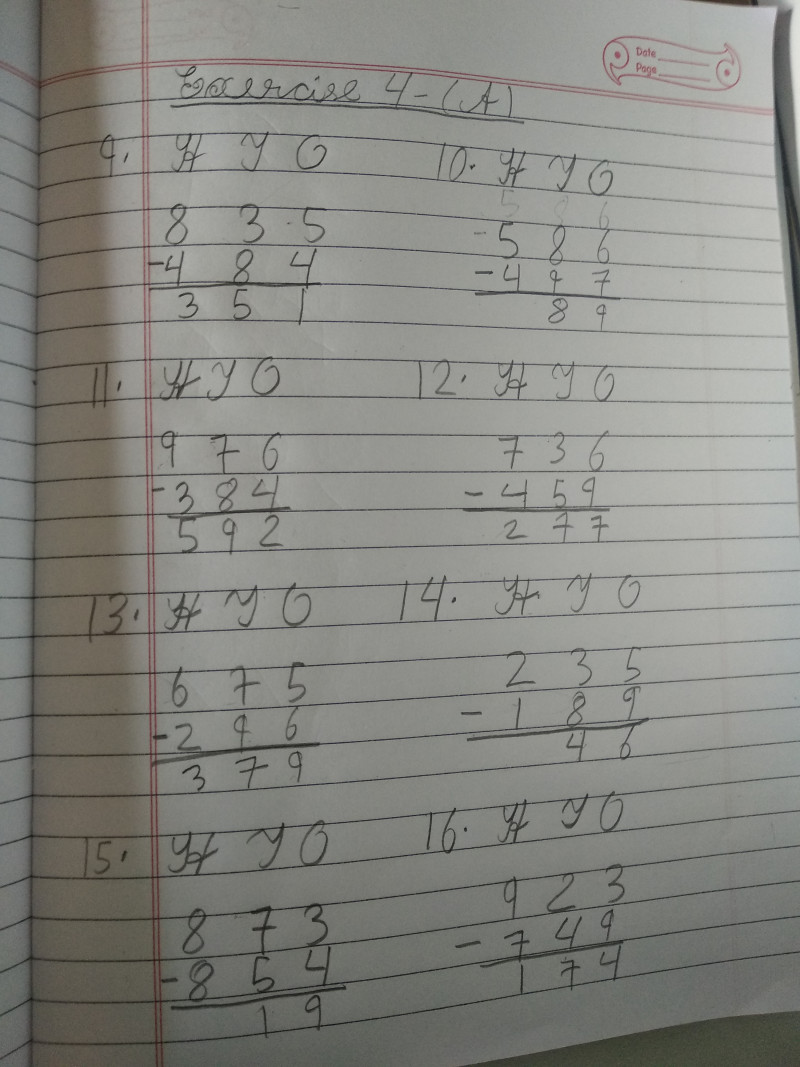 Date
Page
Exercise 4-(A)
9. H T O 10. H T O
5 8 6
8 3 5 -5 8 6
-4 8 4 -4 9 7
3 5 1 8 9
11. H T O 12. H T O
9 7 6 7 3 6
-3 8 4 -4 5 9
5 9 2 2 7 7
13. H T O 14. H T O
6 7 5 2 3 5
-2 9 6 -1 8 9
3 7 9 4 6
15. H T O 16. H T O
8 7 3 9 2 3
-8 5 4 -7 4 9
1 9 1 7 4